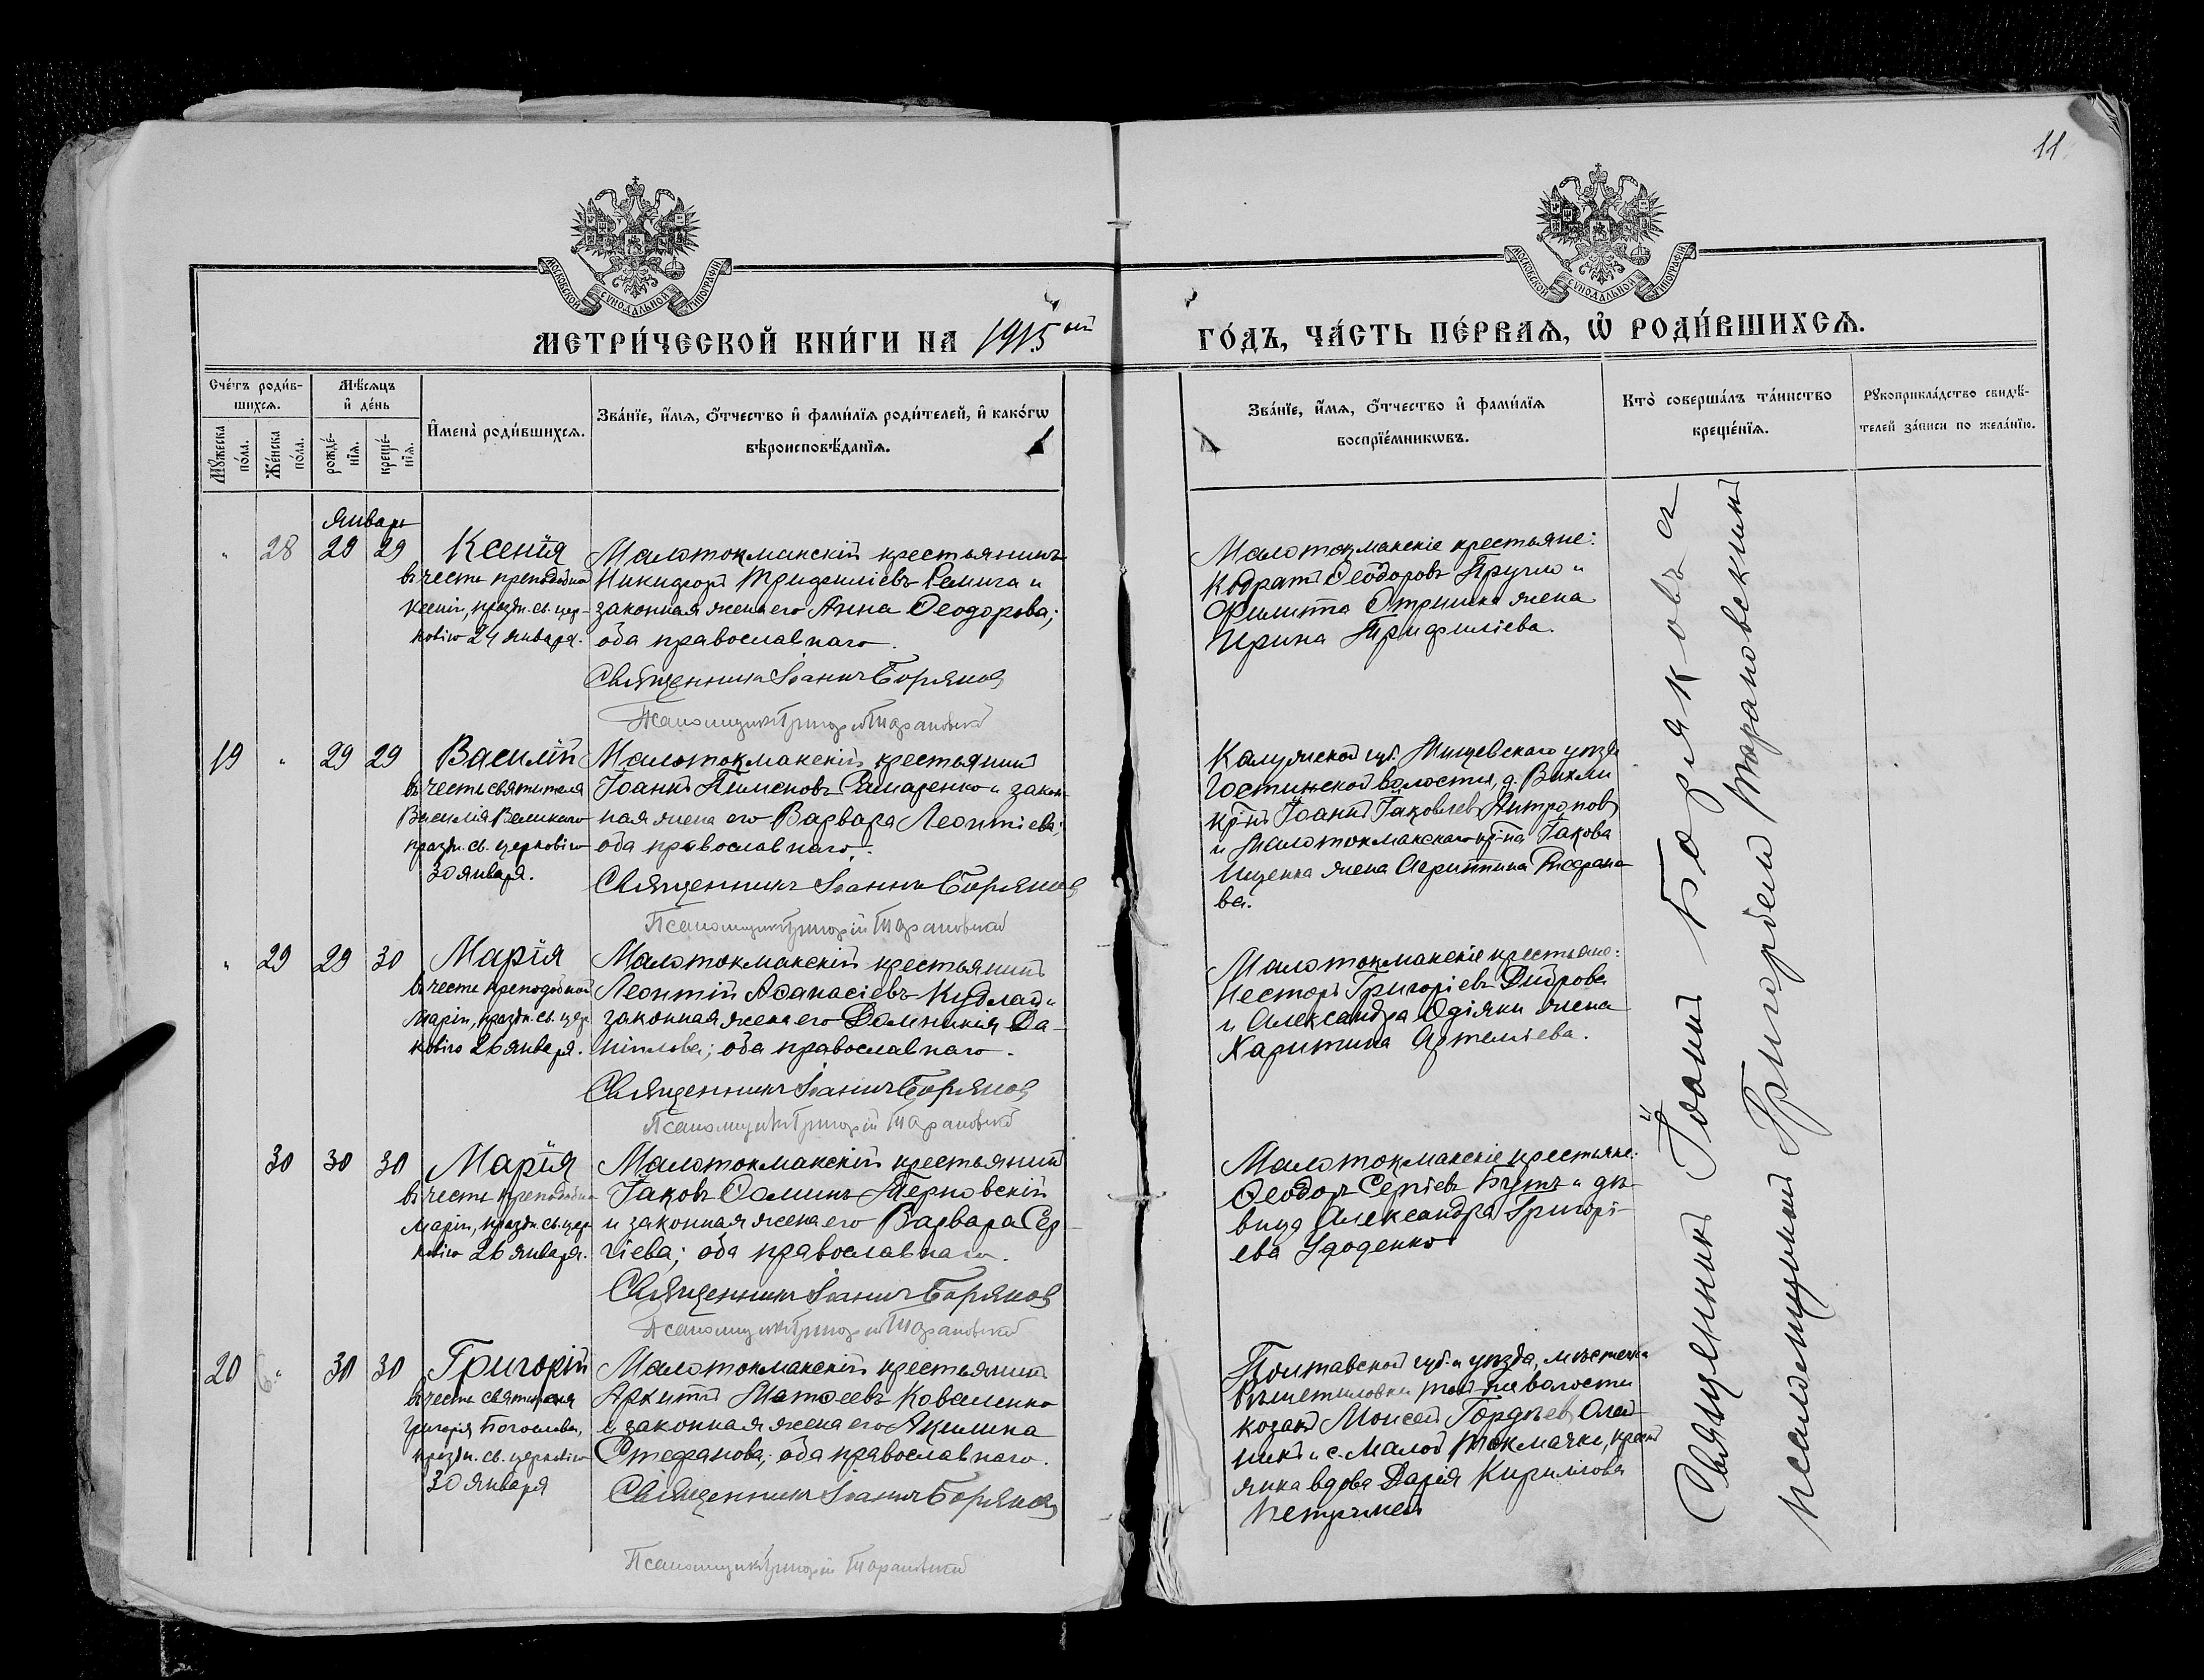 11
МОСКОВСКОЙ СѴНОДАЛЬНОЙ ТИПОГРАФІИ
МОСКОВСКОЙ СѴНОДАЛЬНОЙ ТИПОГРАФІИ
МЕТРИ́ЧЕСКОЙ КНИ́ГИ НА 1915 ый
ГО́ДЪ, ЧА́СТЬ ПЕ́РВАѦ, Ѡ҆ РОДИ́ВШИХСѦ.
Сче́тъ роди́в-
шихсѧ.
Мꙋ́жеска по́ла.
Же́нска по́ла.
Мѣ́сѧцъ
и҆ де́нь
рожде́-
нїѧ.
креще́-
нїѧ.
И҆мена̀ роди́вшихсѧ.
Зва́нїе, и҆́мѧ, ѻ҆́тчество и҆ фами́лїѧ роди́телей, и҆ како́гѡ
вѣроисповѣ́данїѧ.
Зва́нїе, и҆́мѧ, ѻ҆́тчество и҆ фами́лїѧ
воспрїе́мникѡвъ.
Кто̀ соверша́лъ та́инство
креще́нїѧ.
Рꙋкоприкла́дство свидѣ́-
телей за́писи по жела́нїю.
Январь
" 28 29 29 Ксенія
въ честь преподобной
Ксеніи, празд. св. цер-
ковію 24 января.
Малотокмакскій крестьянинъ
Никифоръ Трифиліевъ и
законная жена его Анна Ѳеодорова;
оба православнаго.
Священникъ Іоаннъ Боряковъ
Псаломщикъ Григорій Тарановскій
Малотокмакскіе крестьяне:
Кодратъ Ѳеодоровъ и
жена
Ирина Трифиліева.
19 " 29 29 Василій
въ честь святителя
Василія Великаго
празд. св. церковію
30 января.
Малотокмакскій крестьянинъ
Іоаннъ Пименовъ и закон-
ная жена его Варвара Леонтіева;
оба православнаго.
Священникъ Іоаннъ Боряковъ
Псаломщикъ Григорій Тарановскій
Калужской губ. уѣзда
волости, д.
кр-нъ Іоаннъ Іаковлевъ Антроповъ
и Малотокмакскаго кр-на Іакова
Ищенка жена
ва.
" 29 29 30 Марія
въ честь преподобной
Маріи, празд. св. цер
ковію 26 января.
Малотокмакскій крестьянинъ
Леонтій Аѳанасіевъ Кудлай и
законная жена его Домникія Да-
ніилова; оба православнаго.
Священникъ Іоаннъ Боряковъ
Псаломщикъ Григорій Тарановскій
Малотокмакскіе крестьяне:
Несторъ Григоріевъ
и Александра жена
Харитина Артеміева.
30 30 30 Марія
въ честь преподобной
Маріи, празд. св. цер
ковію 26 января.
Малотокмакскій крестьянинъ
Іаковъ Ѳоминъ Терновскій
и законная жена его Варвара Сер-
гіева; оба православнаго.
Священникъ Іоаннъ Боряковъ
Псаломщикъ Григорій Тарановскій
Малотокмакскіе крестьяне:
Ѳеодоръ Сергіевъ Бутъ и дѣ-
вица Александра Григорі-
ева Удоденко
20 " 30 30 Григорій
въ честь святителя
Григорія Богослова,
празд. св. церковію
30 января
Малотокмакскій крестьянинъ
Матѳеевъ Коваленко
и законная жена его Акилина
Стефанова; оба православнаго.
Священникъ Іоаннъ Боряковъ
Псаломщикъ Григорій Тарановскій
Полтавской губ. и уѣзда, мѣстечка
той-же волости
козакъ Моисей Гордѣевъ Олей-
никъ и с. Малой Токмачки, крестъ
янка вдова Дарія Кириллова
Священникъ Іоаннъ Боряковъ съ
псаломщикомъ Григоріемъ Тарановскимъ